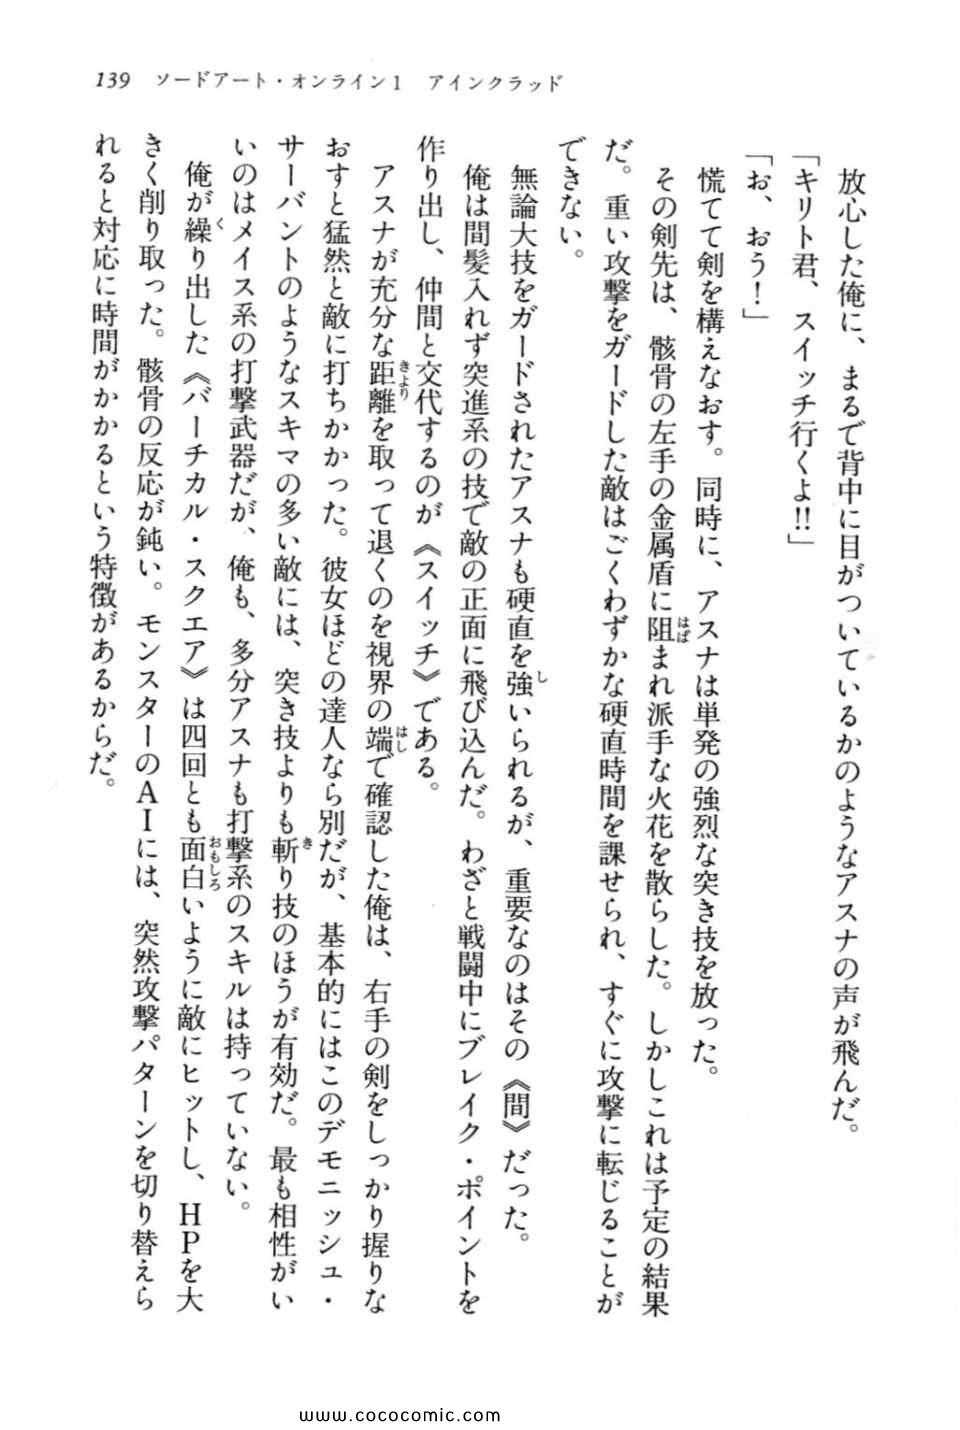 139　ソードアート・オンライン1　アインクラッド
放心した俺に、まるで背中に目がついているかのようなアスナの声が飛んだ。
「キリト君、スイッチ行くよ!!」
「お、おう！」
慌てて剣を構えなおす。同時に、アスナは単発の強烈な突き技を放った。
その剣先は、骸骨の左手の金属盾に阻まれ派手な火花を散らした。しかしこれは予定の結果
だ。重い攻撃をガードした敵はごくわずかな硬直時間を課せられ、すぐに攻撃に転じることが
できない。
無論大技をガードされたアスナも硬直を強いられるが、重要なのはその《間》だった。
俺は間髪入れず突進系の技で敵の正面に飛び込んだ。わざと戦闘中にブレイク・ポイントを
作り出し、仲間と交代するのが《スイッチ》である。
アスナが充分な距離を取って退くのを視界の端で確認した俺は、右手の剣をしっかり握りな
おすと猛然と敵に打ちかかった。彼女ほどの達人なら別だが、基本的にはこのデモニッシュ・
サーバントのようなスキマの多い敵には、突き技よりも斬り技のほうが有効だ。最も相性がい
いのはメイス系の打撃武器だが、俺も、多分アスナも打撃系のスキルは持っていない。
俺が繰り出した《バーチカル・スクエア》は四回とも面白いように敵にヒットし、HPを大
きく削り取った。骸骨の反応が鈍い。モンスターのAIには、突然攻撃パターンを切り替えら
れると対応に時間がかかるという特徴があるからだ。
www.cococomic.com